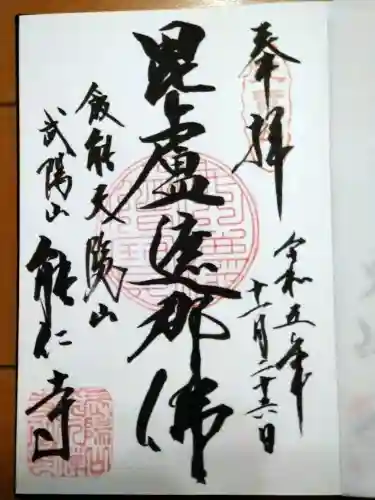 奉拝
令和五年
十一月二十六日
毘盧遮那佛
飯能天覧山
武陽山
能仁寺